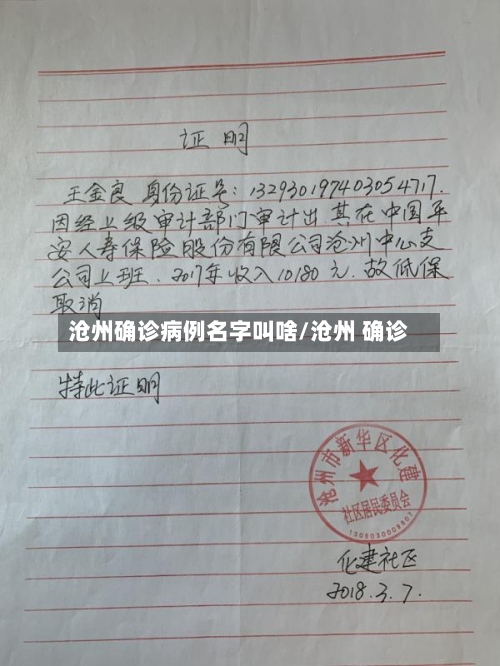 证明
王金良 身份证号：132930197403054717.
因经上级审计部门审计出 其在中国平
安人寿保险股份有限公司沧州中心支
公司上班.2017年收入10180元.故低保
取消
沧州确诊病例名字叫啥/沧州 确诊
特此证明
沧州市新华区化建
社区居民委员会
化建社区
2018.3.7.